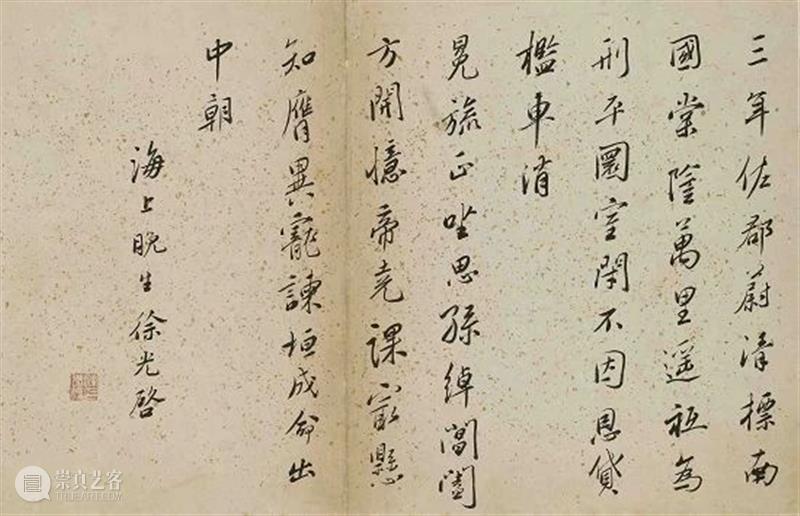 三年佐郡蔚清標南
國棠陰萬里遥祗為
刑平圜室閑不因恩貸
檻車消
冕旒正坐思孫綽閶闔
方開憶帝堯課最懸
知膺異寵諫垣成命出
中朝
海上晚生徐光啓
崇真艺客